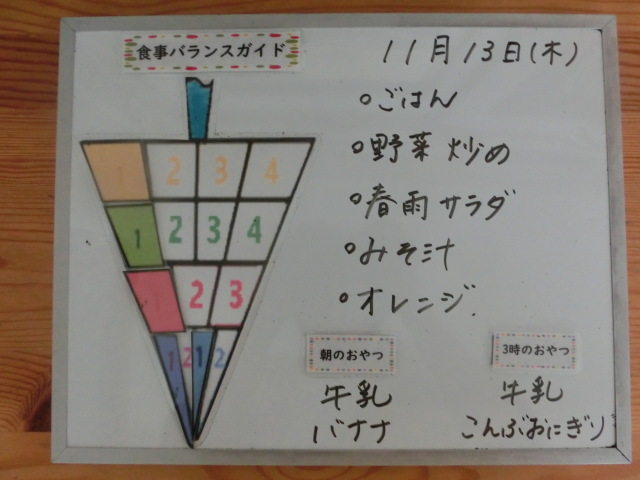 食事バランスガイド
11月13日(木)
○ごはん
○野菜炒め
○春雨サラダ
○みそ汁
○オレンジ
1 2 3 4
1 2 3 4
1 2 3
1 2 1 2
朝のおやつ
牛乳
バナナ
3時のおやつ
牛乳
こんぶおにぎり